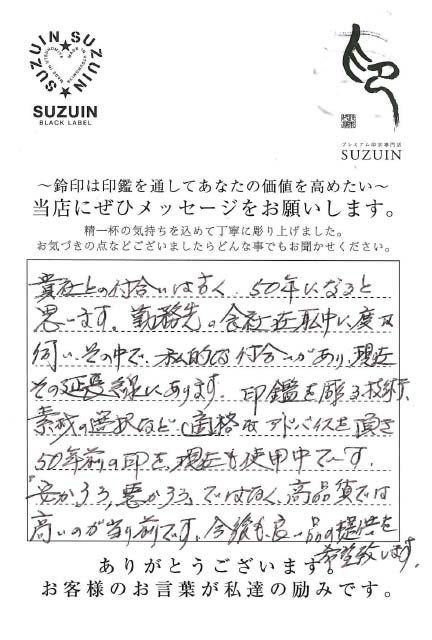 SUZUIN SUZUIN
SUZUIN
BLACK LABEL
プレミアム印章専門店
SUZUIN
～鈴印は印鑑を通してあなたの価値を高めたい～
当店にぜひメッセージをお願いします。
精一杯の気持ちを込めて丁寧に彫り上げました。
お気づきの点などございましたらどんな事でもお聞かせください。
貴社との付合いは古く、50年になると
思います。勤務先の会社在職中に度々
伺い、その中で、私的な付合いがあり、現在
その延長線にあります。印鑑を彫る技術、
素材の選択など適格なアドバイスを頂き
50年前の印を、現在も使用中です。
「安かろう、悪かろう」ではなく、高品質では
高いのが当り前です。今後も、良い品の提供を
希望致します。
ありがとうございます。
お客様のお言葉が私達の励みです。